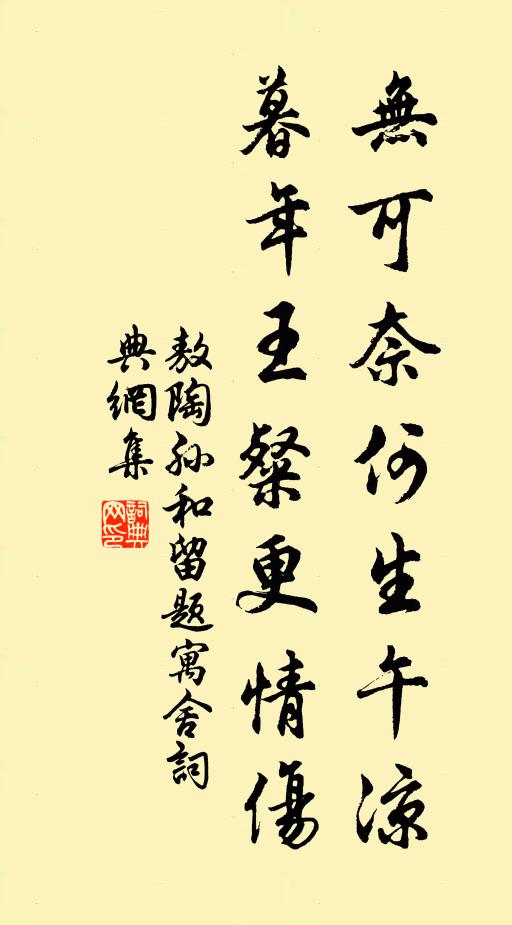 無可奈何生午涼
暮年王粲更情傷
敖陶孫和留題寓舍詞
典網集
詞典網印